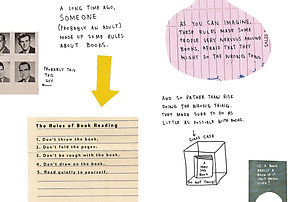 A LONG TIME AGO,
SOMEONE
(PROBABLY AN ADULT)
MADE UP SOME RULES
ABOUT BOOKS.
PROBABLY THIS
THIS
GUY
The Rules of Book Reading
1. Don't throw the book.
2. Don't fold the pages.
3. Don't be rough with the book.
4. Don't draw on the book.
5. Read quietly to yourself.
AS YOU CAN IMAGINE,
THESE RULES MADE SOME
PEOPLE VERY NERVOUS AROUND
BOOKS, AFRAID THAT THEY
MIGHT DO THE WRONG THING.
AND SO RATHER THAN RISK
DOING THE WRONG THING,
THEY MADE SURE TO DO AS
LITTLE AS POSSIBLE WITH BOOKS.
GLASS CASE
DO NOT TOUCH
IS A BOOK
REALLY A
BOOK IF IT